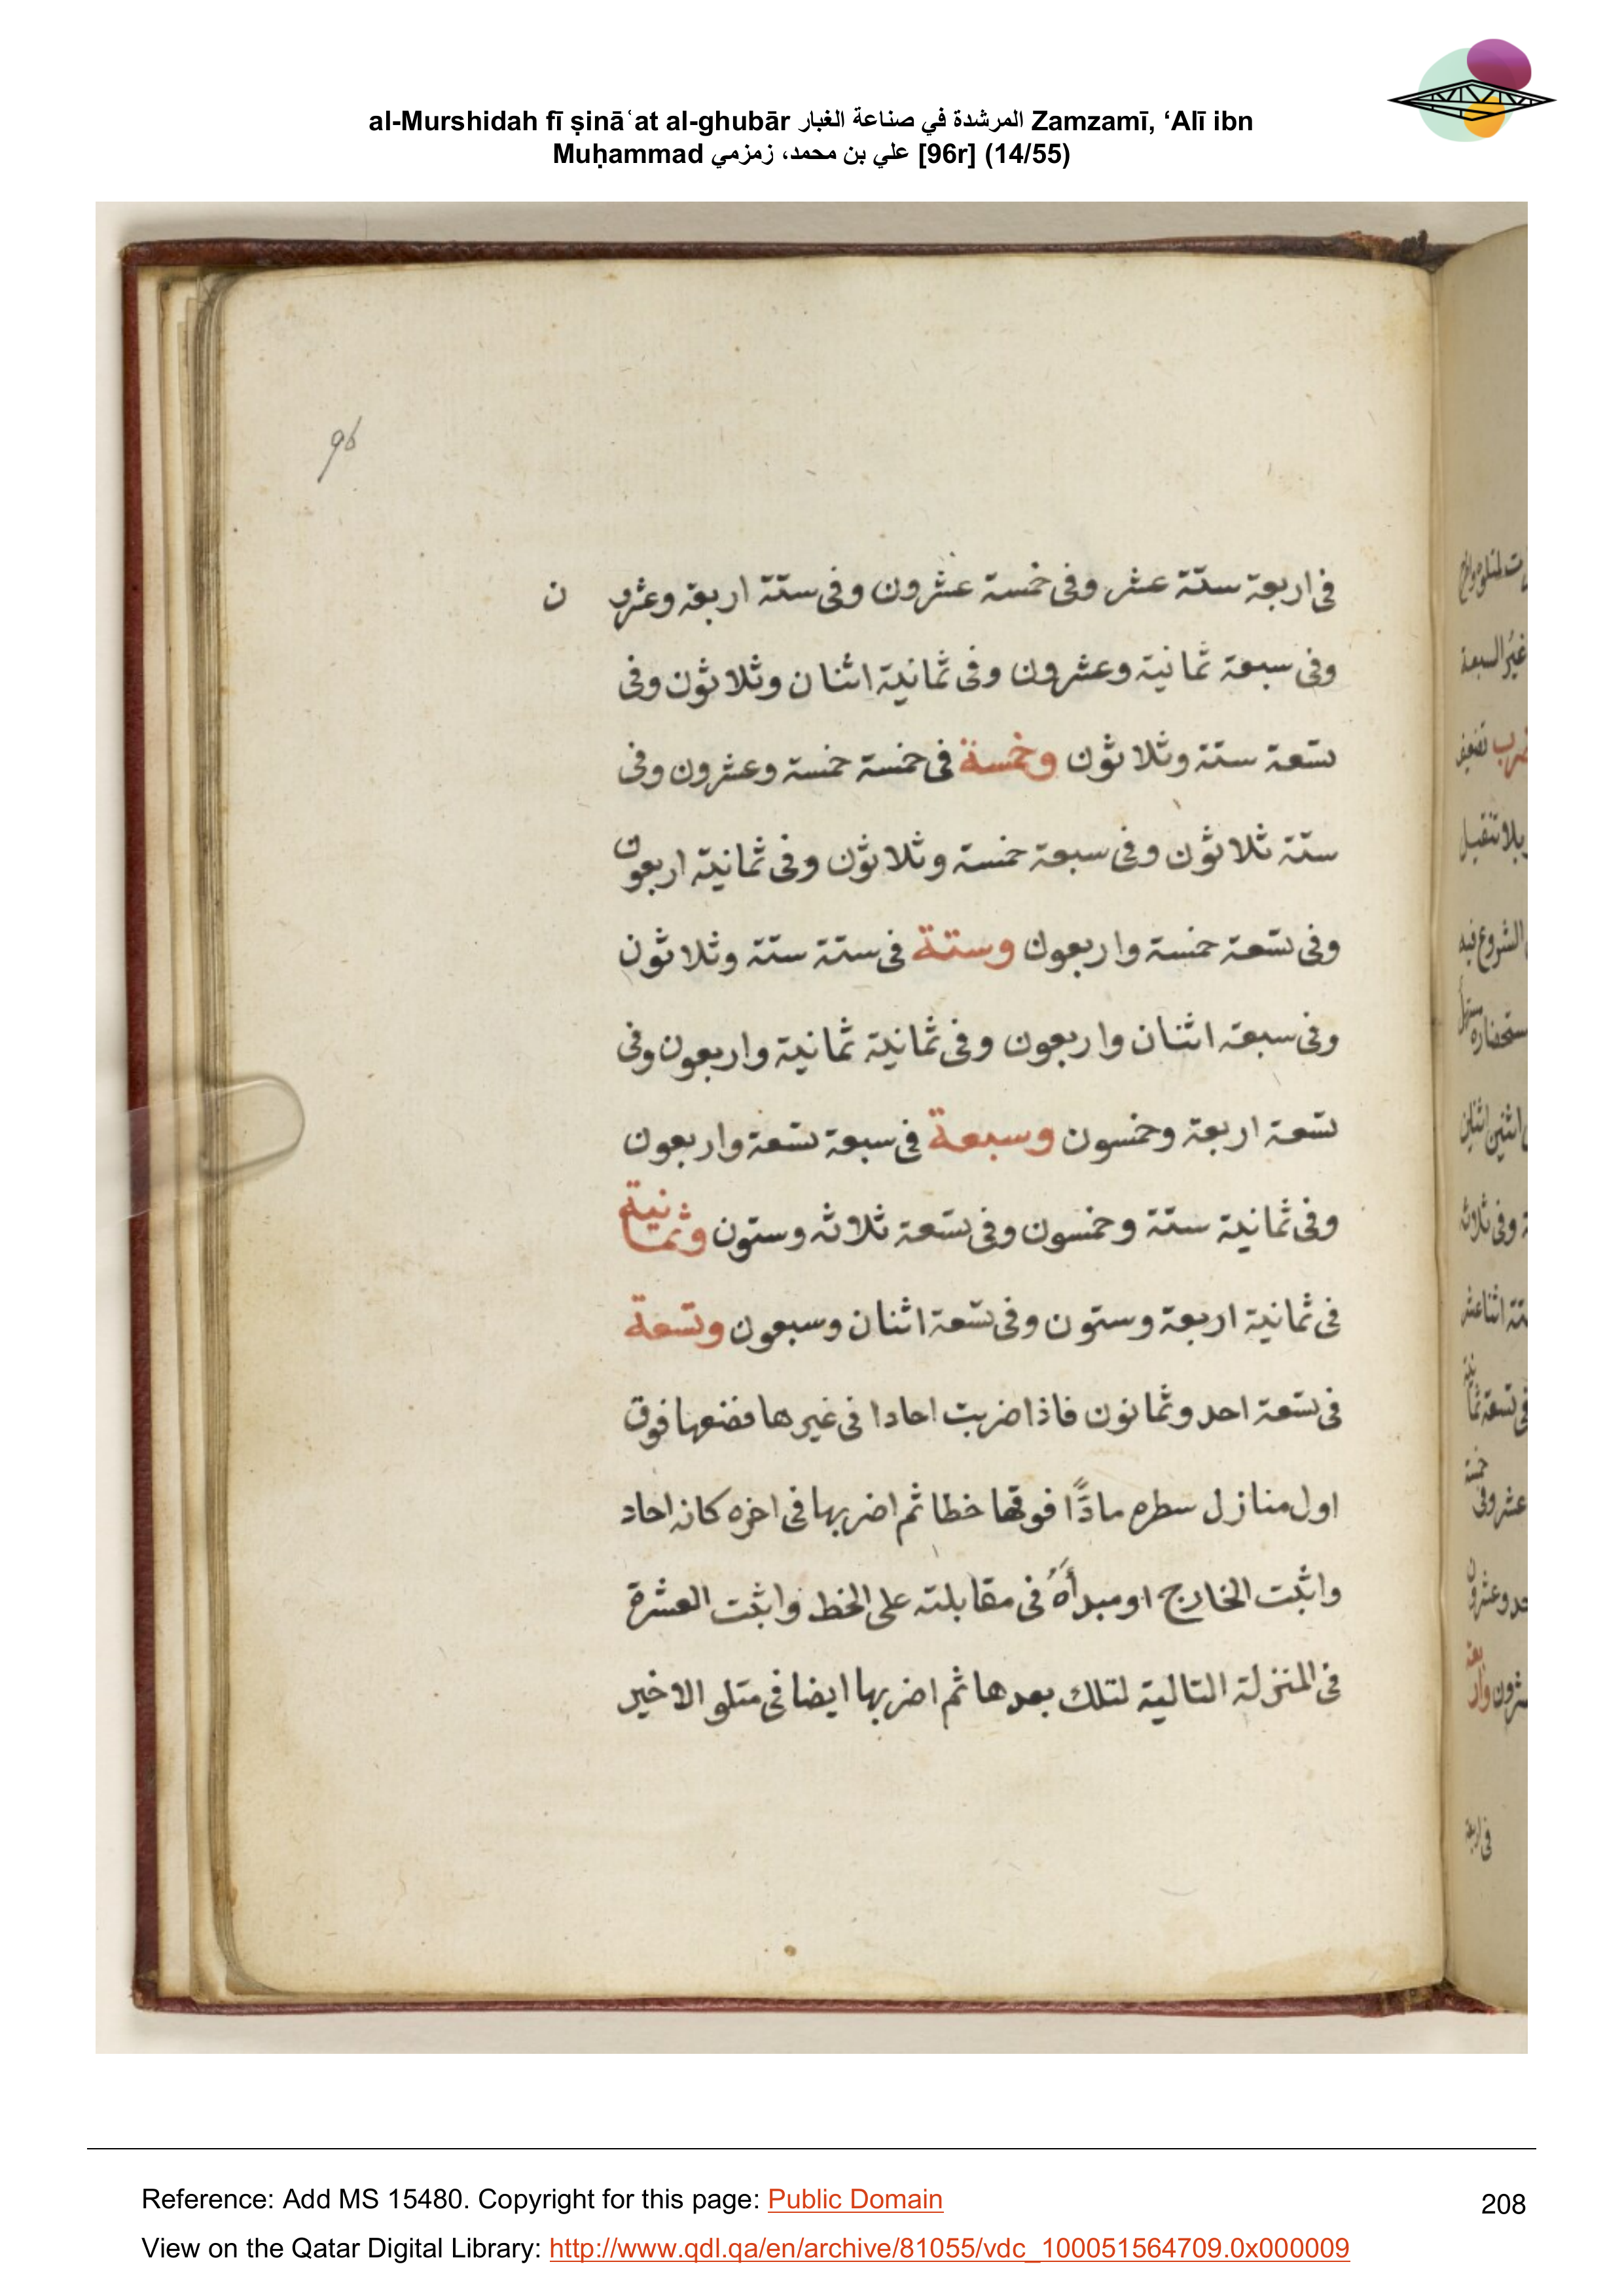 al-Murshidah fī ṣināʿat al-ghubār المرشدة في صناعة الغبار Zamzamī, ‘Alī ibn
Muḥammad علي بن محمد، زمزمي [96r] (14/55)
96
في اربعة ستة عشر وفي خمسة عشرون وفي ستة اربعة وعشرون
وفي سبعة ثمانية وعشرون وفي ثمانية اثنان وثلاثون وفي
تسعة ستة وثلاثون وخمسة في خمسة خمسة وعشرون وفي
ستة ثلاثون وفي سبعة خمسة وثلاثون وفي ثمانية اربعون
وفي تسعة خمسة واربعون وستة في ستة ستة وثلاثون
وفي سبعة اثنان واربعون وفي ثمانية ثمانية واربعون وفي
تسعة اربعة وخمسون وسبعة في سبعة تسعة واربعون
وفي ثمانية ستة وخمسون وفي تسعة ثلاثه وستون وثمانية
في ثمانية اربعة وستون وفي تسعة اثنان وسبعون وتسعة
في تسعة احد وثمانون فاذا ضربت احادا في غيرها فضعها فوق
اول منازل سطره مادًّا فوقها خطا ثم اضربها في اخره كانه احاد
واثبت الخارج او مبدأه في مقابلته على الخط واثبت العشرة
في المنزلة التالية لتلك بعدها ثم اضربها ايضا في متلو الاخير
غير السبعة
ضرب تضعيف
بلا تثقيل
الشروع فيه
اثنين اثنين
وفي ثلاثة
ستة اثنا عشر
في تسعة ثمانية
عشر وفي خمسة
احد وعشرون
عشرون واربعة
في اربعة
Reference: Add MS 15480. Copyright for this page: Public Domain
208
View on the Qatar Digital Library: http://www.qdl.qa/en/archive/81055/vdc_100051564709.0x000009